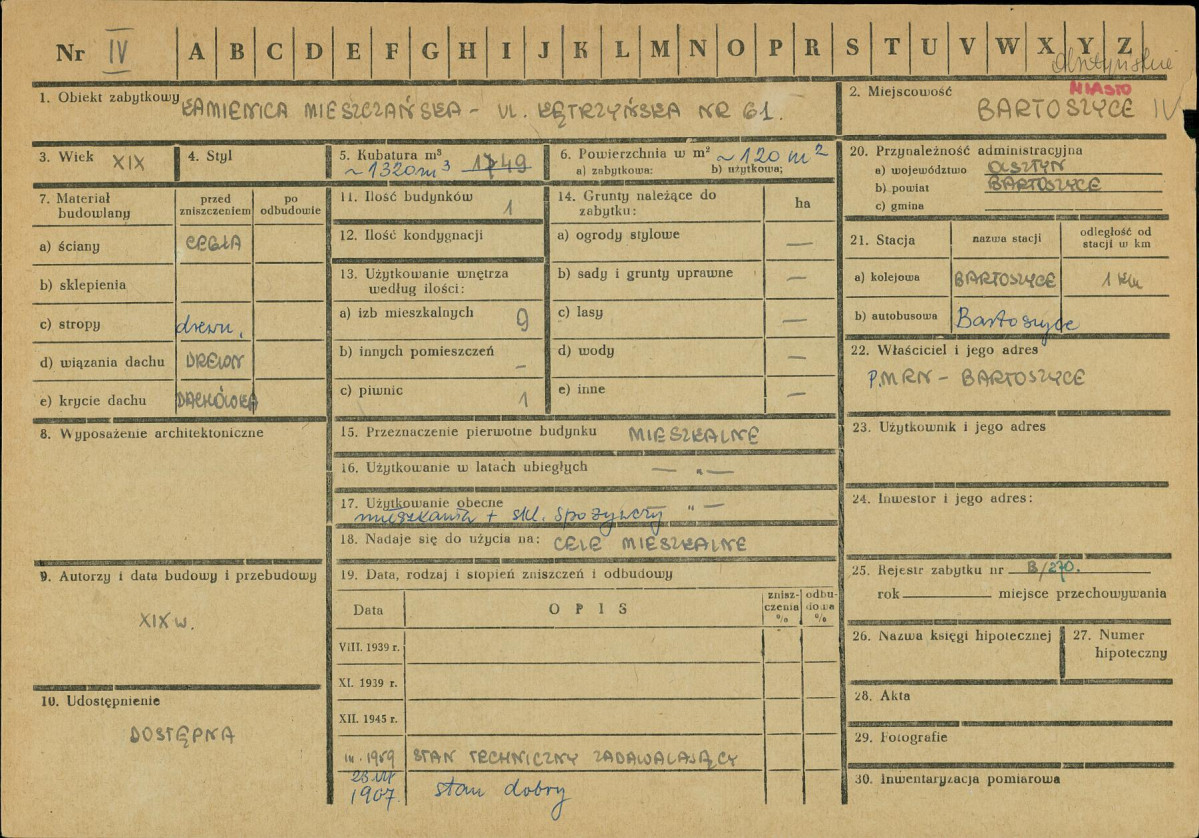 Nr IV A B C D E F G H I J K L M N O P R S T U V W X Y Z
1. Obiekt zabytkowy KAMIENICA MIESZCZAŃSKA – UL. KĘTRZYŃSKA NR 61.
2. Miejscowość MIASTO
BARTOSZYCE IV
3. Wiek XIX
4. Styl
5. Kubatura m³
~1320 m³ 1749
6. Powierzchnia w m² ~120 m²
a) zabytkowa: b) użytkowa;
20. Przynależność administracyjna
a) województwo OLSZTYN
b) powiat BARTOSZYCE
c) gmina
7. Materiał budowlany
przed zniszczeniem
po odbudowie
a) ściany CEGŁA
b) sklepienia
c) stropy drewn.
d) wiązania dachu DREWN
e) krycie dachu DACHÓWKA
8. Wyposażenie architektoniczne
9. Autorzy i data budowy i przebudowy
XIX w.
10. Udostępnienie
DOSTĘPNA
11. Ilość budynków 1
12. Ilość kondygnacji
13. Użytkowanie wnętrza
według ilości:
a) izb mieszkalnych 9
b) innych pomieszczeń –
c) piwnic 1
14. Grunty należące do
zabytku: ha
a) ogrody stylowe —
b) sady i grunty uprawne —
c) lasy —
d) wody —
e) inne —
15. Przeznaczenie pierwotne budynku MIESZKALNE
16. Użytkowanie w latach ubiegłych — „ —
17. Użytkowanie obecne — „ —
mieszkania + skl. spożywczy
18. Nadaje się do użycia na: CELE MIESZKALNE
19. Data, rodzaj i stopień zniszczeń i odbudowy
Data OPIS znisz-czenia % odbu-dowa %
VIII. 1939 r.
XI. 1939 r.
XII. 1945 r.
III. 1959 STAN TECHNICZNY ZADAWALAJĄCY
1967. stan dobry
21. Stacja nazwa stacji odległość od stacji w km
a) kolejowa BARTOSZYCE 1 km
b) autobusowa Bartoszyce
22. Właściciel i jego adres
P.MRN – BARTOSZYCE
23. Użytkownik i jego adres
24. Inwestor i jego adres:
25. Rejestr zabytku nr B/270.
rok miejsce przechowywania
26. Nazwa księgi hipotecznej
27. Numer
hipoteczny
28. Akta
29. Fotografie
30. Inwentaryzacja pomiarowa